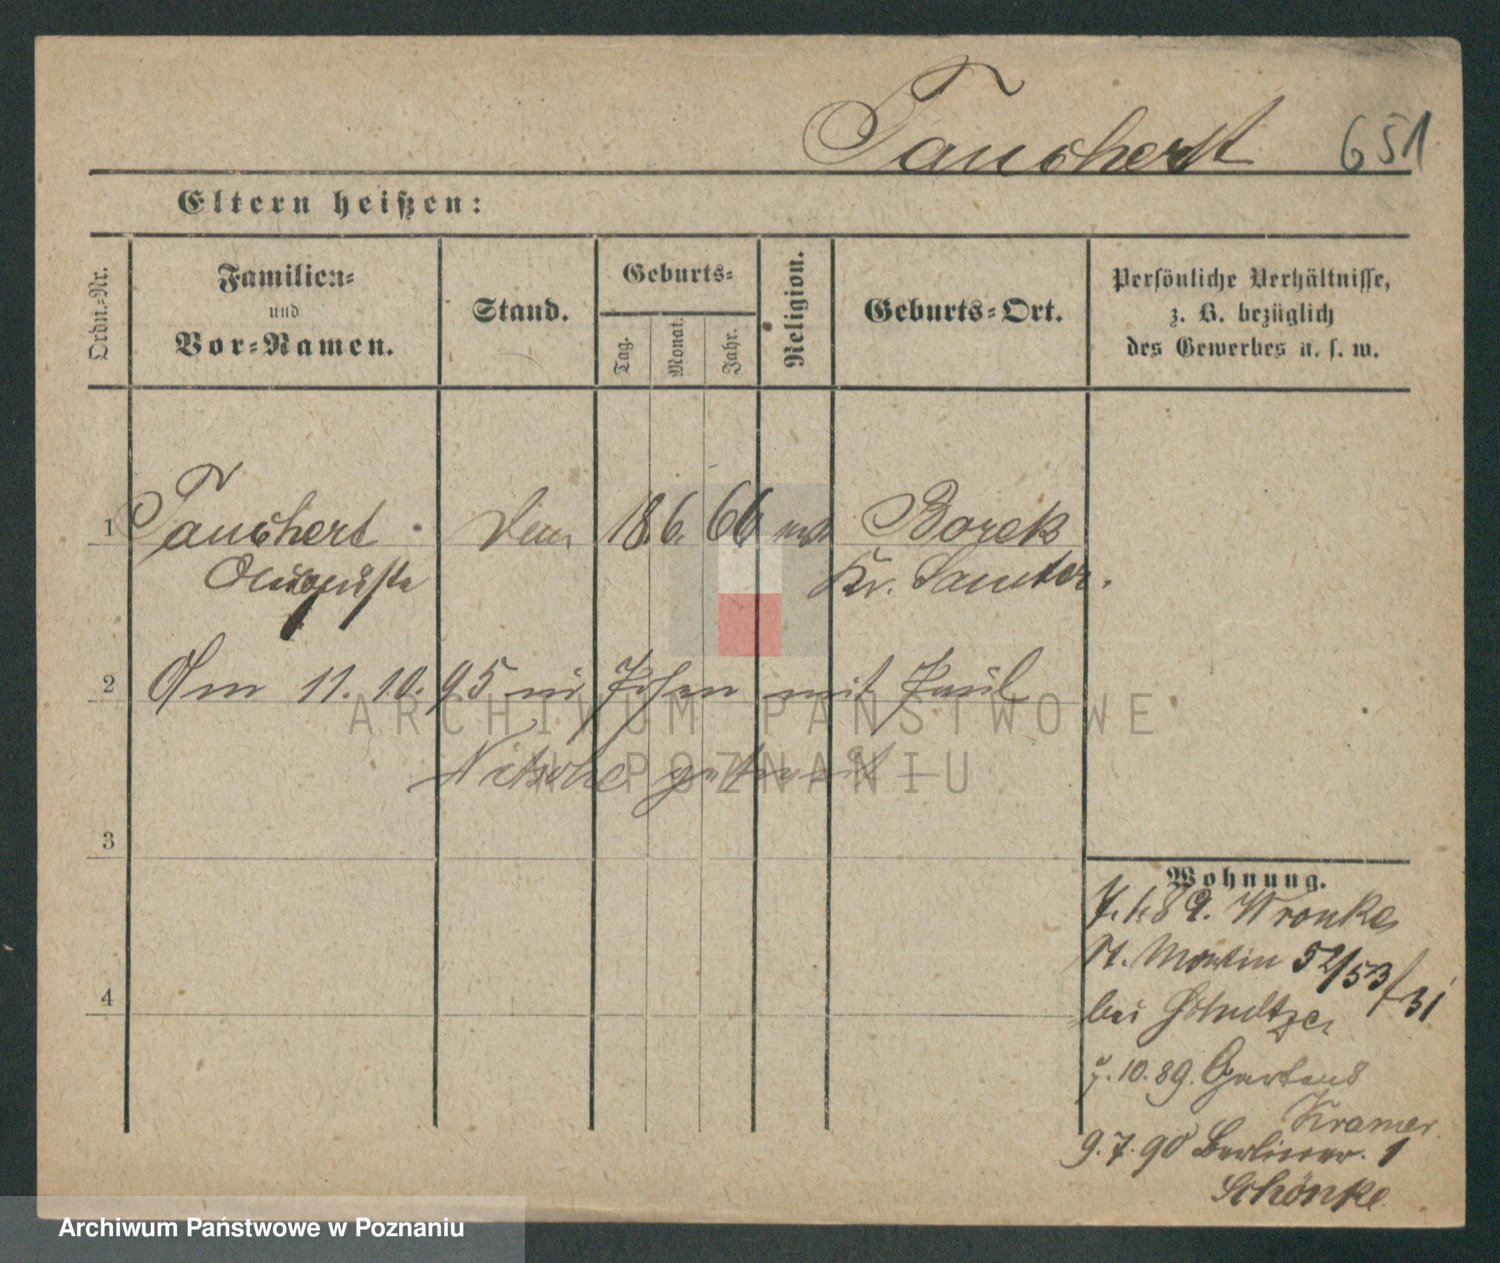 Tauchert 651
Eltern heißen:
Ordn.-Nr.
Familien-
und
Vor-Namen.
Stand.
Geburts-
Tag.
Monat.
Jahr.
Religion.
Geburts-Ort.
Persönliche Verhältnisse,
z. B. bezüglich
des Gewerbes u. s. w.
1 Tauchert 18 6. 66 Borek
Auguste Kr. Samter.
2 Am 11. 10. 95 in Posen mit Paul
Nitsche getraut
3
4
Wohnung.
89. Wronke
St. Martin 52/53
bei
10. 89. Gartens
Kramer
9. 7. 90 Berliner. 1
Schönke
ARCHIWUM PAŃSTWOWE
W POZNANIU
Archiwum Państwowe w Poznaniu